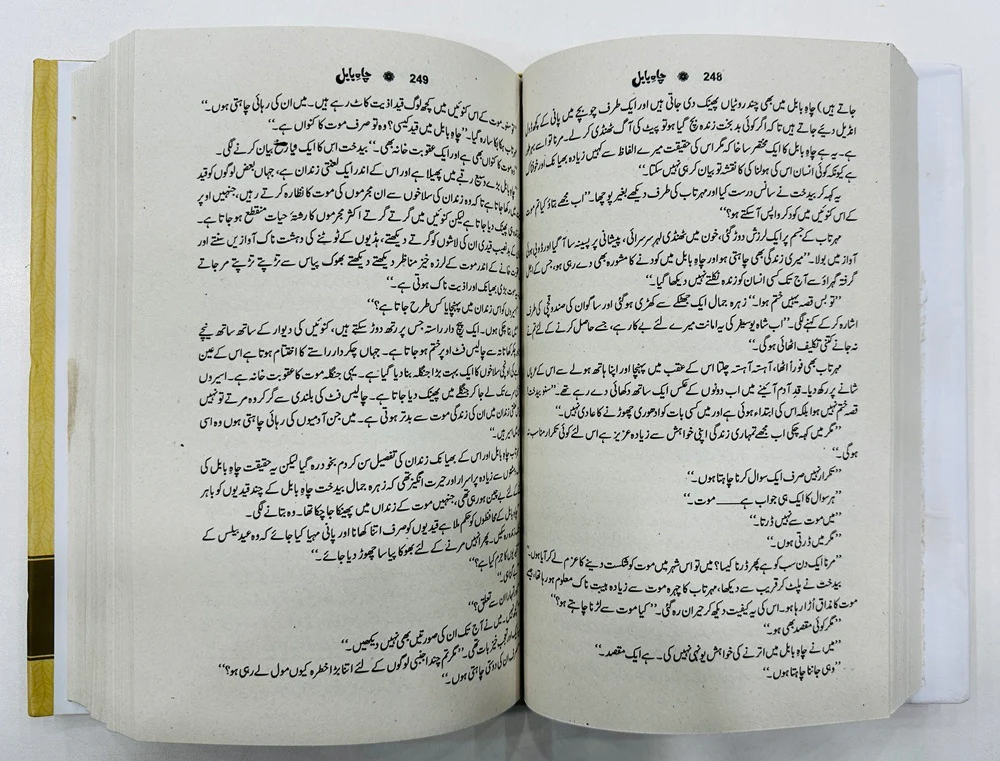 248 چاہِ بابل
جاتے ہیں) چاہِ بابل میں بھی چند روٹیاں پھینک دی جاتی ہیں اور ایک طرف چوبچے میں پانی کے کچھ
انڈیل دیئے جاتے ہیں تاکہ اگر کوئی بد بخت زندہ بچ گیا ہو تو پیٹ کی آگ ٹھنڈی کر لے۔ مرنا تو اسے بہر
ہے۔ یہ ہے چاہِ بابل کا ایک مختصر سا خاکہ مگر اس کی حقیقت میرے الفاظ سے کہیں زیادہ بھیانک اور خوفناک
ہے کیونکہ کوئی انسان اس کی ہولناکی کا نقشہ تو بیان کر ہی نہیں سکتا۔“
یہ کہہ کر بیدخت نے سانس درست کیا اور مہرتاب کی طرف دیکھے بغیر پوچھا۔ ”اب مجھے بتاؤ کیا تم موت
کے اس کنوئیں میں کود کر واپس آ سکتے ہو؟“
مہرتاب کے جسم پر ایک لرزش دوڑ گئی، خون میں ٹھنڈی لہر سرسرائی، پیشانی پر پسینہ سا آ گیا اور ڈوبتی ہوئی
آواز میں بولا۔ ”میری زندگی بھی چاہتی ہو اور چاہِ بابل میں کودنے کا مشورہ بھی دے رہی ہو، جس کے
گرفتہ گہراؤ سے آج تک کسی انسان کو زندہ نکلتے نہیں دیکھا گیا۔“
”تو بس قصہ یہیں ختم ہوا۔“ زہرہ جمال ایک جھٹکے سے کھڑی ہو گئی اور ساگوان کی صندوقچی کی طرف
اشارہ کر کے کہنے لگی۔ ”اب شاہ بوسیفر کی یہ امانت میرے لئے بے کار ہے، جسے حاصل کرنے کے لئے تم نے
نہ جانے کتنی تکلیف اٹھائی ہو گی۔“
مہرتاب بھی فوراً اٹھا، آہستہ آہستہ چلتا اس کے عقب میں پہنچا اور اپنا ہاتھ ہولے سے اس کے
شانے پر رکھ دیا۔ قد آدم آئینے میں اب دونوں کے عکس ایک ساتھ دکھائی دے رہے تھے۔ ”سنو بیدخت!
قصہ ختم نہیں ہوا بلکہ اس کی ابتداء ہوئی ہے اور میں کسی بات کو ادھوری چھوڑنے کا عادی نہیں۔“
”مگر میں کہہ چکی اب مجھے تمہاری زندگی اپنی خواہش سے زیادہ عزیز ہے اس لئے کوئی تکرار مناسب نہ
ہوگی۔“
”تکرار نہیں صرف ایک سوال کرنا چاہتا ہوں۔“
”ہر سوال کا ایک ہی جواب ہے ____ موت۔“
”میں موت سے نہیں ڈرتا۔“
”مگر میں ڈرتی ہوں۔“
”مرنا ایک دن سب کو ہے پھر ڈرنا کیسا؟ میں تو اس شہر میں موت کو شکست دینے کا عزم لے کر آیا ہوں۔“
بیدخت نے پلٹ کر قریب سے دیکھا، مہرتاب کا چہرہ موت سے زیادہ ہیبت ناک معلوم ہو رہا تھا، جیسے
موت کا مذاق اُڑا رہا ہو۔ اس کی یہ کیفیت دیکھ کر حیران رہ گئی۔ ”کیا موت سے لڑنا چاہتے ہو؟“
”مگر کوئی مقصد بھی ہو۔“
”میں نے چاہِ بابل میں اترنے کی خواہش یونہی نہیں کی۔ ہے ایک مقصد۔“
”وہی جاننا چاہتا ہوں۔“
249 چاہِ بابل
موت کے اس کنوئیں میں کچھ لوگ قید اذیت کاٹ رہے ہیں۔ میں ان کی رہائی چاہتی ہوں۔“
ہکا بکا سا رہ گیا۔ ”چاہِ بابل میں قید کیسی؟ وہ تو صرف موت کا کنواں ہے۔“
موت کا کنواں بھی ہے اور ایک عقوبت خانہ بھی۔“ بیدخت اس کا ایک نیا رخ بیان کرنے لگی۔
بابل بڑے وسیع رقبے میں پھیلا ہے اور اس کے اندر ایک لعنتی زندان ہے، جہاں بعض لوگوں کو قید
رکھا جاتا ہے تاکہ وہ زندان کی سلاخوں سے ان مجرموں کی موت کا نظارہ کرتے رہیں، جنہیں اوپر
پھینک دیا جاتا ہے لیکن کنوئیں میں گرتے گرتے اکثر مجرموں کا رشتۂ حیات منقطع ہو جاتا ہے۔
نصیب قیدی ان کی لاشوں کو گرتے دیکھتے، ہڈیوں کے ٹوٹنے کی دہشت ناک آوازیں سنتے اور
خانے کے اندر موت کے لرزہ خیز مناظر دیکھتے دیکھتے بھوک پیاس سے تڑپتے تڑپتے مر جاتے
موت بڑی بھیانک اور اذیت ناک ہوتی ہے۔“
کو اس زندان میں پہنچایا کس طرح جاتا ہے؟“
بتا چکی ہوں۔ ایک پیچ دار راستہ جس پر رتھ دوڑ سکتے ہیں، کنوئیں کی دیوار کے ساتھ ساتھ نیچے
سے چالیس فٹ اوپر ختم ہو جاتا ہے۔ جہاں چکر دار راستے کا اختتام ہوتا ہے اس کے عین
اونچی سلاخوں کا ایک بہت بڑا جنگلہ بنا دیا گیا ہے۔ یہی جنگلہ موت کا عقوبت خانہ ہے۔ اسیروں
سے لے جا کر جنگلے میں پھینک دیا جاتا ہے۔ چالیس فٹ کی بلندی سے گر کر وہ مرتے تو نہیں
زندان میں ان کی زندگی موت سے بدتر ہوتی ہے۔ میں جن آدمیوں کی رہائی چاہتی ہوں وہ اسی
اسیر ہیں۔“
چاہِ بابل اور اس کے بھیانک زندان کی تفصیل سن کر دم بخود رہ گیا لیکن یہ حقیقت چاہِ بابل کی
سے زیادہ پراسرار اور حیرت انگیز تھی کہ زہرہ جمال بیدخت چاہِ بابل کے چند قیدیوں کو باہر
کے لئے بے چین ہو رہی تھی، جنہیں موت کے زنداں میں پھینکا جا چکا تھا۔ وہ بتانے لگی۔
بابل کے محافظوں کو حکم ملا ہے قیدیوں کو صرف اتنا کھانا اور پانی مہیا کیا جائے کہ وہ عید بیلس کے
زندہ رہیں۔ پھر انہیں مرنے کے لئے بھوکا پیاسا چھوڑ دیا جائے۔“
کا جرم کیا ہے؟“
ان سے تعلق؟“
میں نے آج تک ان کی صورتیں بھی نہیں دیکھیں۔“
اور تعجب خیز بات تھی۔ ”مگر تم چند اجنبی لوگوں کے لئے اتنا بڑا خطرہ کیوں مول لے رہی ہو؟“
ان کی دوستی چاہتی ہوں۔“